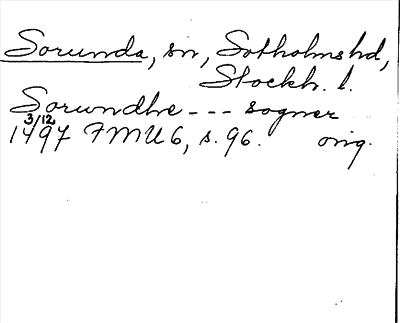 Sorunda, sn, Sotholms hd,
Stockh. l.
Sorundhe --- sogner
3/12
1497 FMU 6, s. 96. orig.